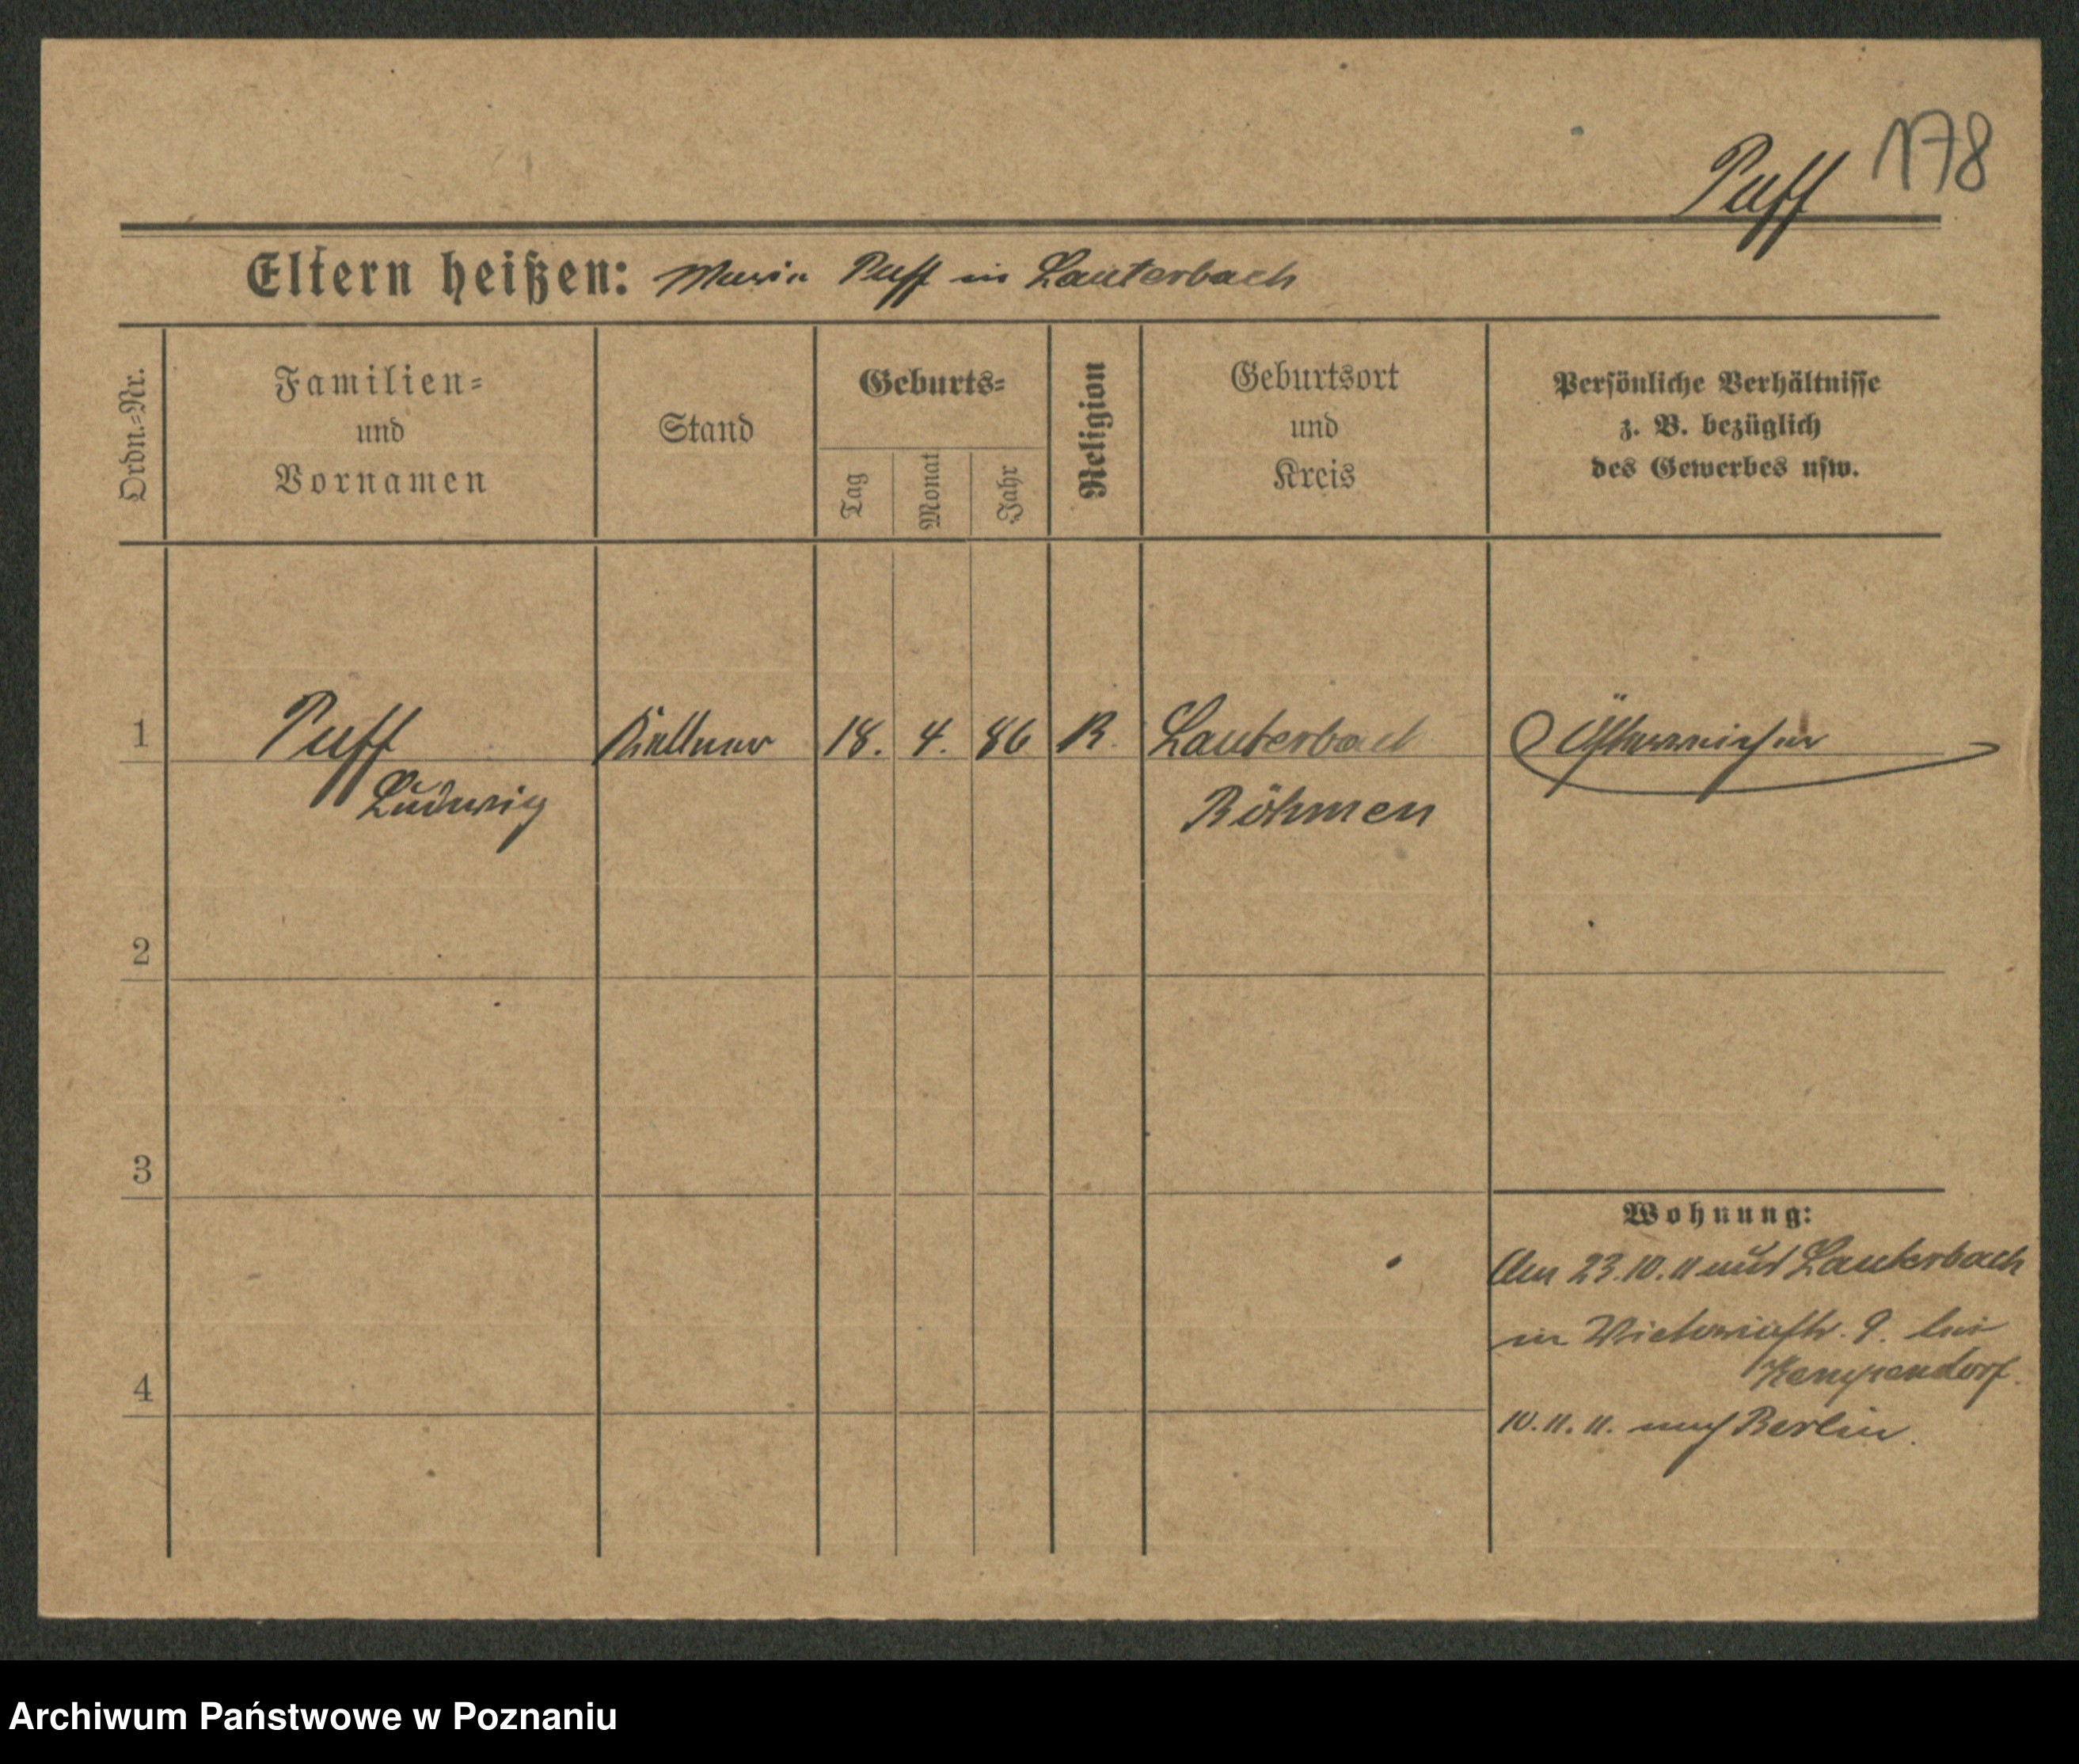 178
Puff
Eltern heißen: Maria Puff in Lauterbach
Ordn.=Nr.
Familien=
und
Vornamen
Stand
Geburts=
Tag
Monat
Jahr
Religion
Geburtsort
und
Kreis
Persönliche Verhältnisse
z. B. bezüglich
des Gewerbes usw.
1 Puff Kellner 18. 4. 86 R. Lauterbach Österreicher
Ludwig Böhmen
2
3
Wohnung:
Am 23.10.11 aus Lauterbach
in Victoriastr. 9. bei
Kempendorf.
4
10.11.11. nach Berlin.
Archiwum Państwowe w Poznaniu